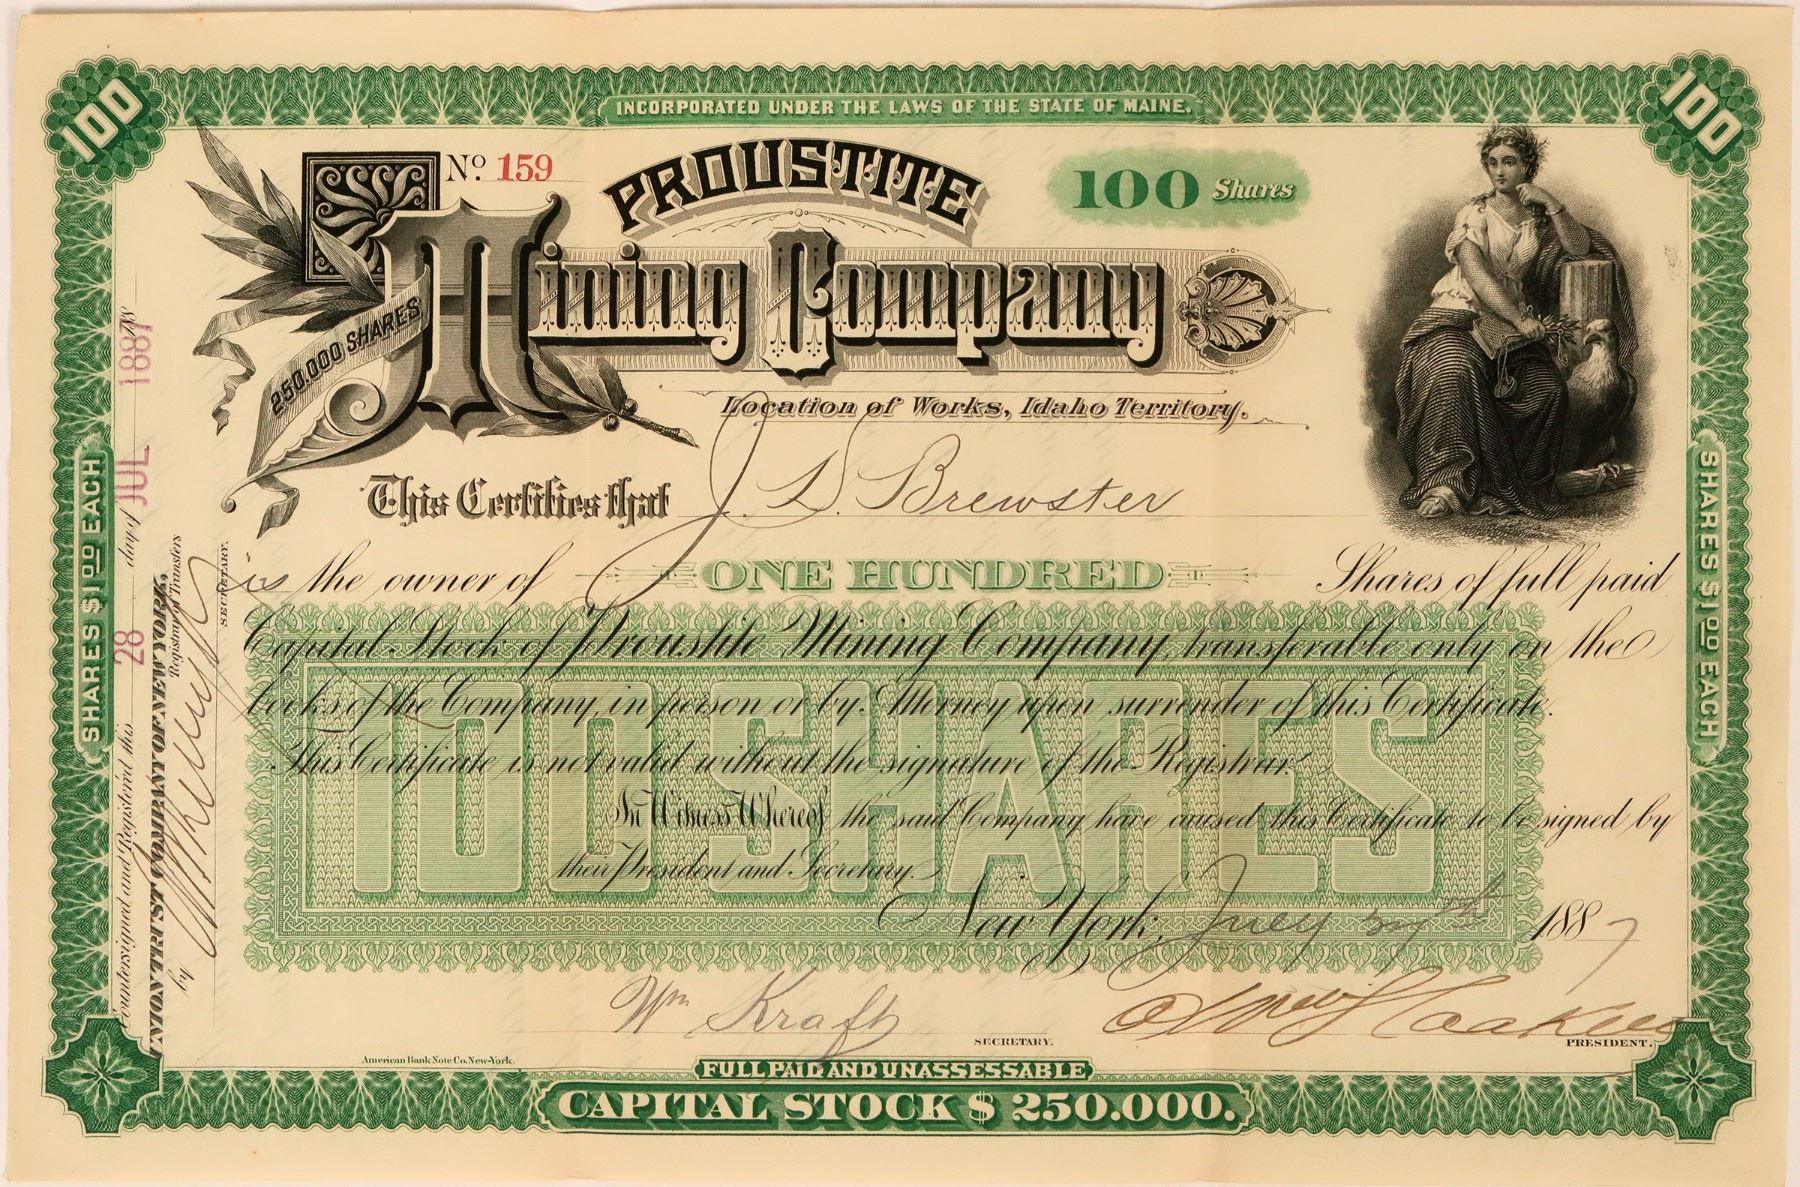 100
INCORPORATED UNDER THE LAWS OF THE STATE OF MAINE.
100
No. 159
PROUSTITE
100 Shares
Mining Company
250.000 SHARES
Location of Works, Idaho Territory.
This Certifies that J. D. Brewster
is the owner of ONE HUNDRED Shares of full paid
Capital Stock of Proustite Mining Company, transferable only on the
books of the Company, in person or by Attorney upon surrender of this Certificate.
This Certificate is not valid without the signature of the Registrar.
100 SHARES
In Witness Whereof the said Company have caused this Certificate to be signed by
their President and Secretary.
New York, July 1887
Wm Kraft
SECRETARY.
PRESIDENT.
American Bank Note Co. New-York.
FULL PAID AND UNASSESSABLE
CAPITAL STOCK $ 250.000.
SHARES $1.00 EACH
Countersigned and Registered this 28 day of JUL 1887 188
UNION TRUST COMPANY OF NEW YORK,
Registrar of Transfers
by
SECRETARY.
SHARES $1.00 EACH